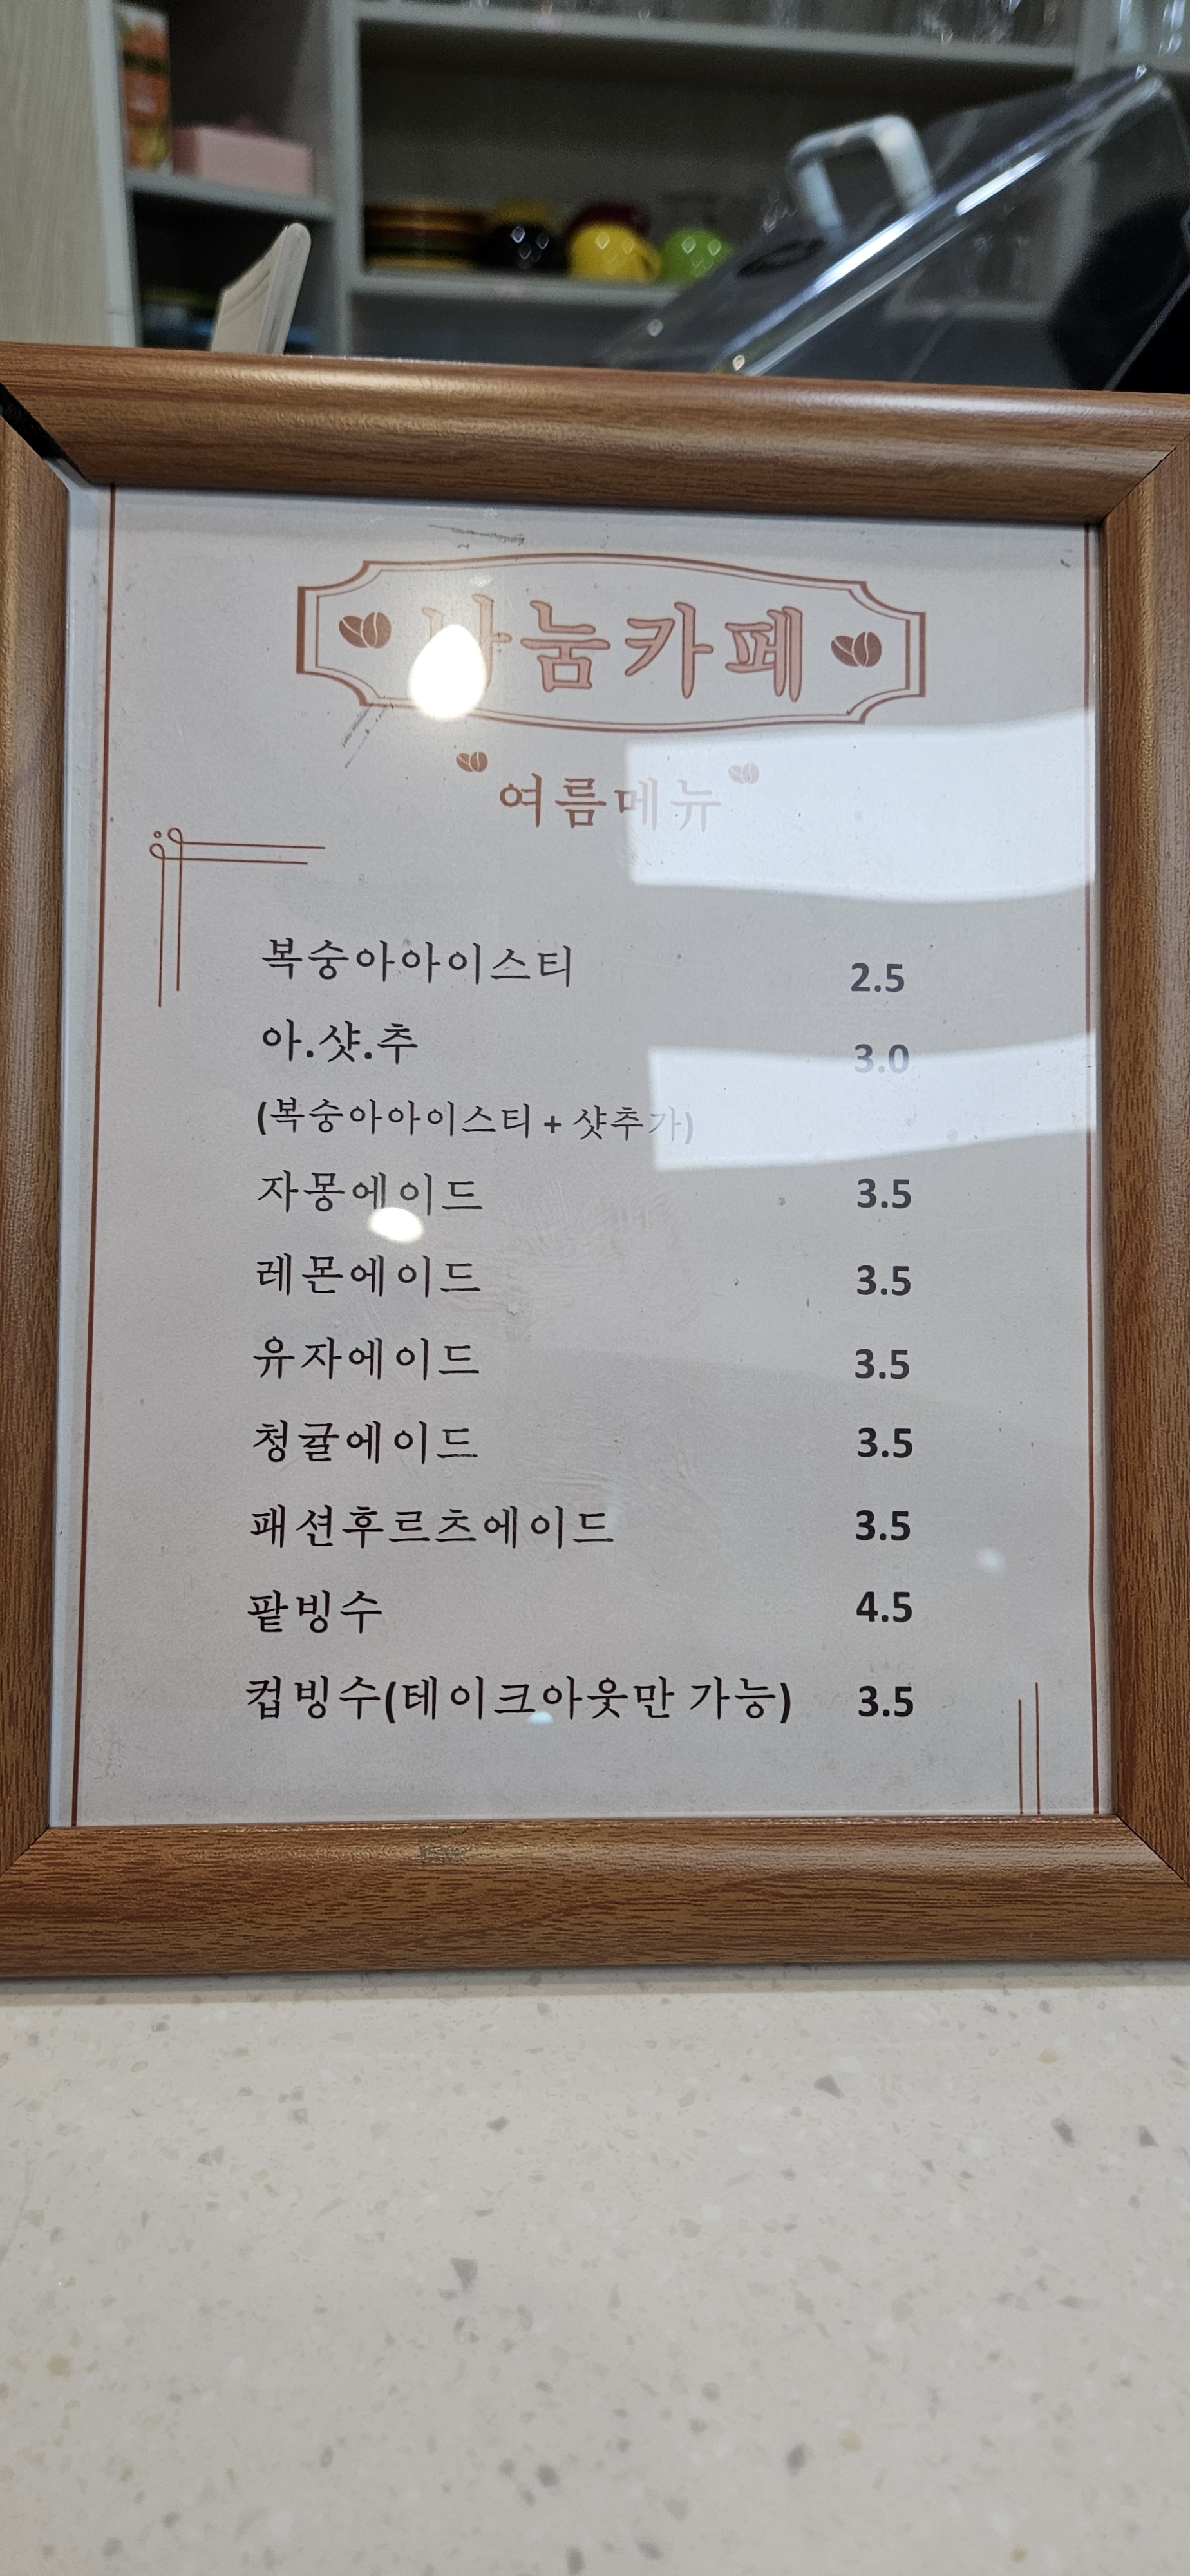 나눔카페
여름메뉴
복숭아아이스티 2.5
아.샷.추 3.0
(복숭아아이스티 + 샷추가)
자몽에이드 3.5
레몬에이드 3.5
유자에이드 3.5
청귤에이드 3.5
패션후르츠에이드 3.5
팥빙수 4.5
컵빙수(테이크아웃만 가능) 3.5